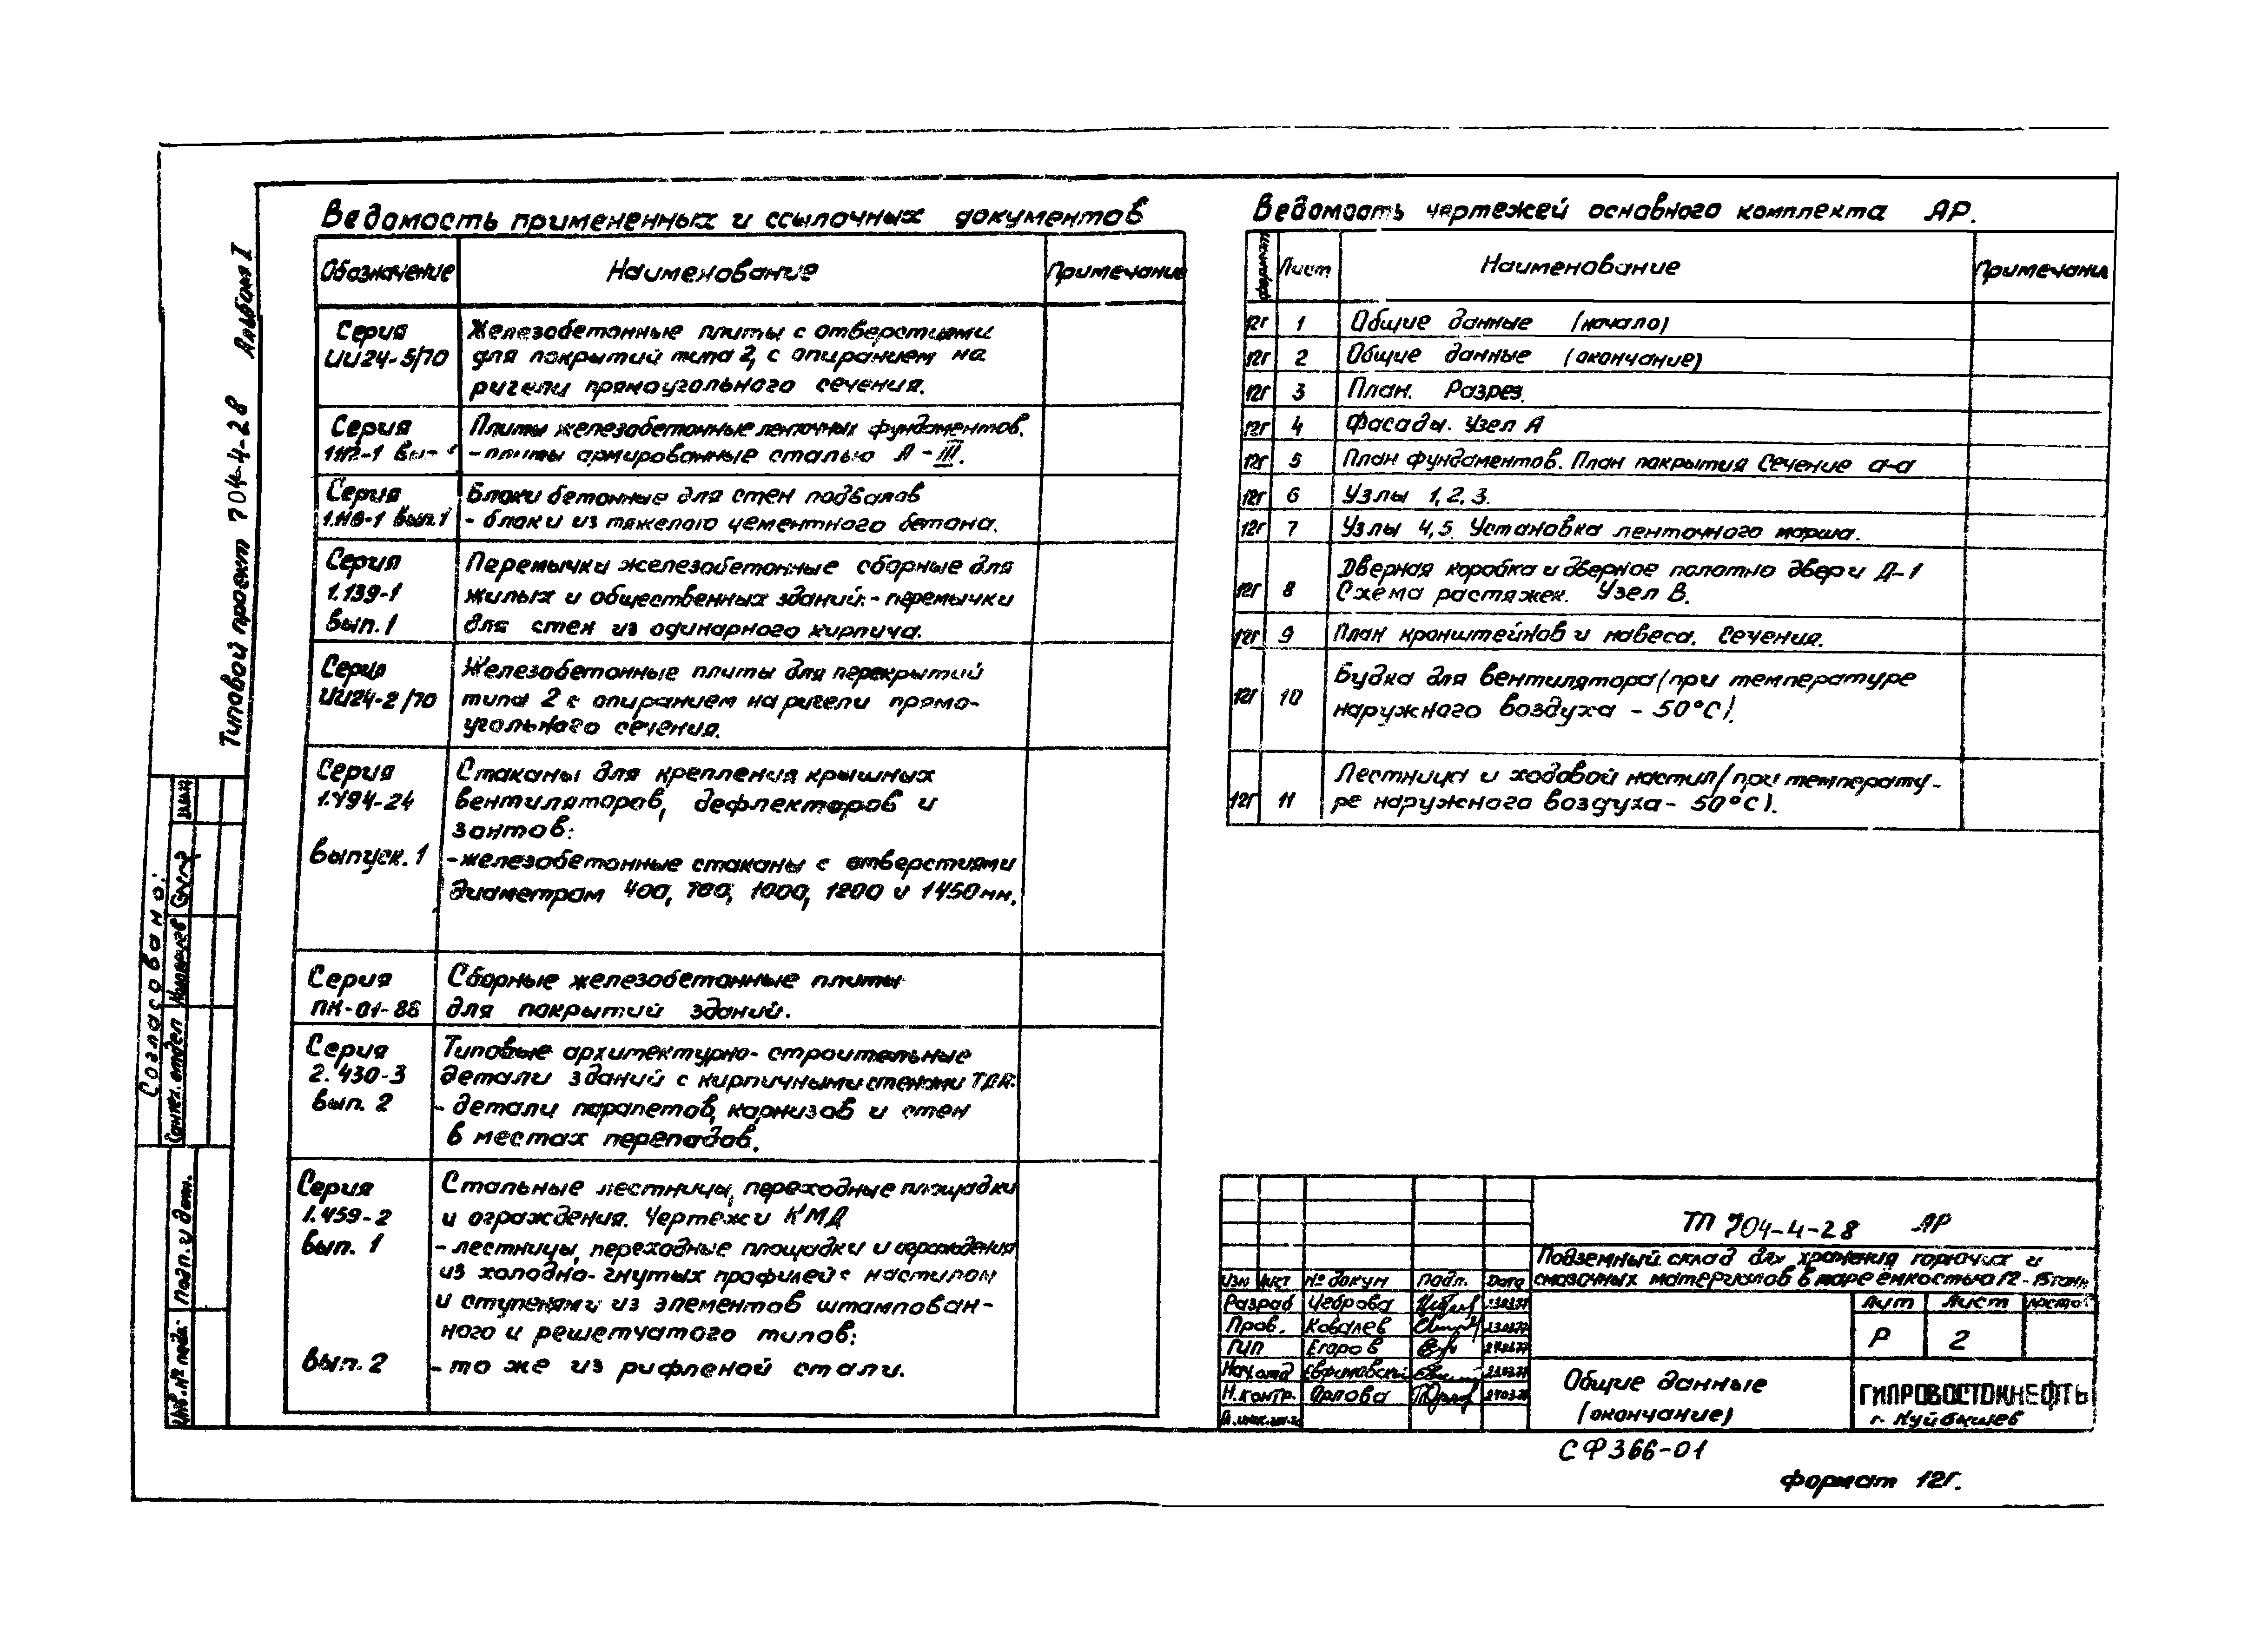 Ведомость примененных и ссылочных документов
Обозначение Наименование Примечание
Серия ИИ24-5/70 Железобетонные плиты с отверстиями
для покрытий типа 2, с опиранием на
ригели прямоугольного сечения.
Серия Плиты железобетонные ленточных фундаментов.
- плиты армированные сталью А-III.
Серия Блоки бетонные для стен подвалов
вып.1 - блоки из тяжелого цементного бетона.
Серия Перемычки железобетонные сборные для
1.139-1 жилых и общественных зданий: - перемычки
Вып.1 для стен из одинарного кирпича.
Серия Железобетонные плиты для перекрытий
ИИ24-2/70 типа 2 с опиранием на ригели прямо-
угольного сечения.
Серия Стаканы для крепления крышных
1.494-24 вентиляторов, дефлекторов и
зонтов:
Выпуск.1 - железобетонные стаканы с отверстиями
диаметрам 400, 700, 1000, 1200 и 1450мм.
Серия Сборные железобетонные плиты
ПК-01-88 для покрытий зданий.
Серия Типовые архитектурно-строительные
2.430-3 детали зданий с кирпичными стенами ТДА.
Вып. 2 - детали парапетов, карнизов и стен
в местах перепадов.
Серия Стальные лестницы, переходные площадки
1.459-2 и ограждения. Чертежи КМД
Вып. 1 - лестницы, переходные площадки и ограждения
из холодно-гнутых профилей с настилом
и ступенями из элементов штампован-
ного и решетчатого типов:
Вып. 2 - то же из рифленой стали.
Ведомость чертежей основного комплекта АР.
Формат Лист Наименование Примечани
12г 1 Общие данные (начало)
12г 2 Общие данные (окончание)
12г 3 План. Разрез.
12г 4 Фасады. Узел А
12г 5 План фундаментов. План покрытия Сечение а-а
12г 6 Узлы 1, 2, 3.
12г 7 Узлы 4, 5. Установка ленточного марша.
12г 8 Дверная коробка и дверное полотно двери Д-1
Схема растяжек. Узел В.
12г 9 План кронштейнов и навеса. Сечения.
12г 10 Будка для вентилятора (при температуре
наружного воздуха - 50°С).
12г 11 Лестница и ходовой настил (при температу-
ре наружного воздуха - 50°С).
Типовой проект 704-4-28 Альбом I
Согласовано:
Сантех. отдел
Подп. и дат.
Инв. № подл.
ТП 704-4-28 АР
Подземный склад для хранения горючих и
смазочных материалов в таре ёмкостью 12-15 тонн
Изм Лист № докум Подп. Дата
Разраб Чеброва
Пров. Ковалев
ГИП Егоров
Нач.отд
Н.контр. Орлова
Лит Лист Листов
Р 2
Общие данные
(окончание)
ГИПРОВОСТОКНЕФТЬ
г. Куйбышев
СФ366-01
Формат 12г.